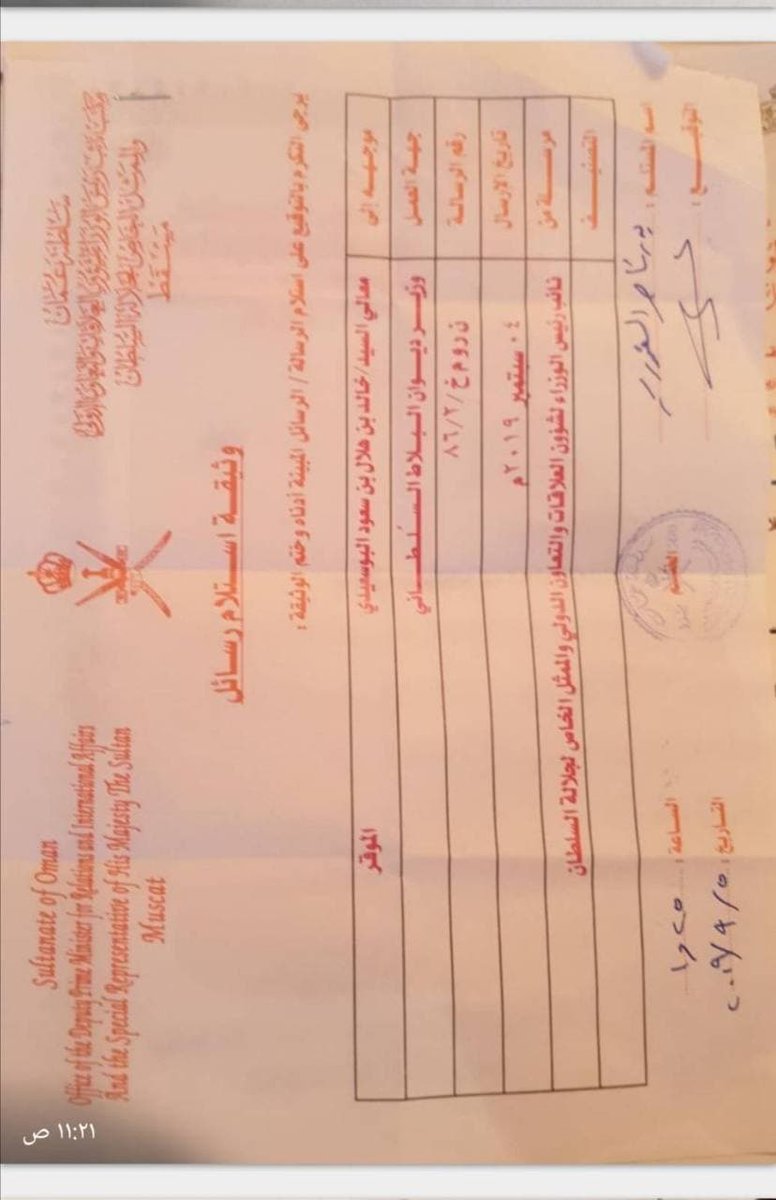 سلطنة عمان
مكتب نائب رئيس الوزراء لشؤون العلاقات والتعاون الدولي
والممثل الخاص لجلالة السلطان
مسقط
Sultanate of Oman
Office of the Deputy Prime Minister for Relations and International Affairs
And the Special Representative of His Majesty The Sultan
Muscat
وثيقة استلام رسائل
يرجى التكرم بالتوقيع على استلام الرسالة / الرسائل المبينة أدناه وختم الوثيقة :
موجهه إلى معالي السيد/خالد بن هلال بن سعود البوسعيدي الموقر
جهة العمل وزير ديوان البلاط السلطاني
رقم الرسالة ن ر و م خ /٨٦/٢
تاريخ الارسال ٠٤ سبتمبر ٢٠١٩م
مرسلة من نائب رئيس الوزراء لشؤون العلاقات والتعاون الدولي والممثل الخاص لجلالة السلطان
التصنيف
اسم المستلم :
الختم
الساعة :
التوقيع :
التاريخ : ٢٠١٩/٩/٥
١١:٢١ ص